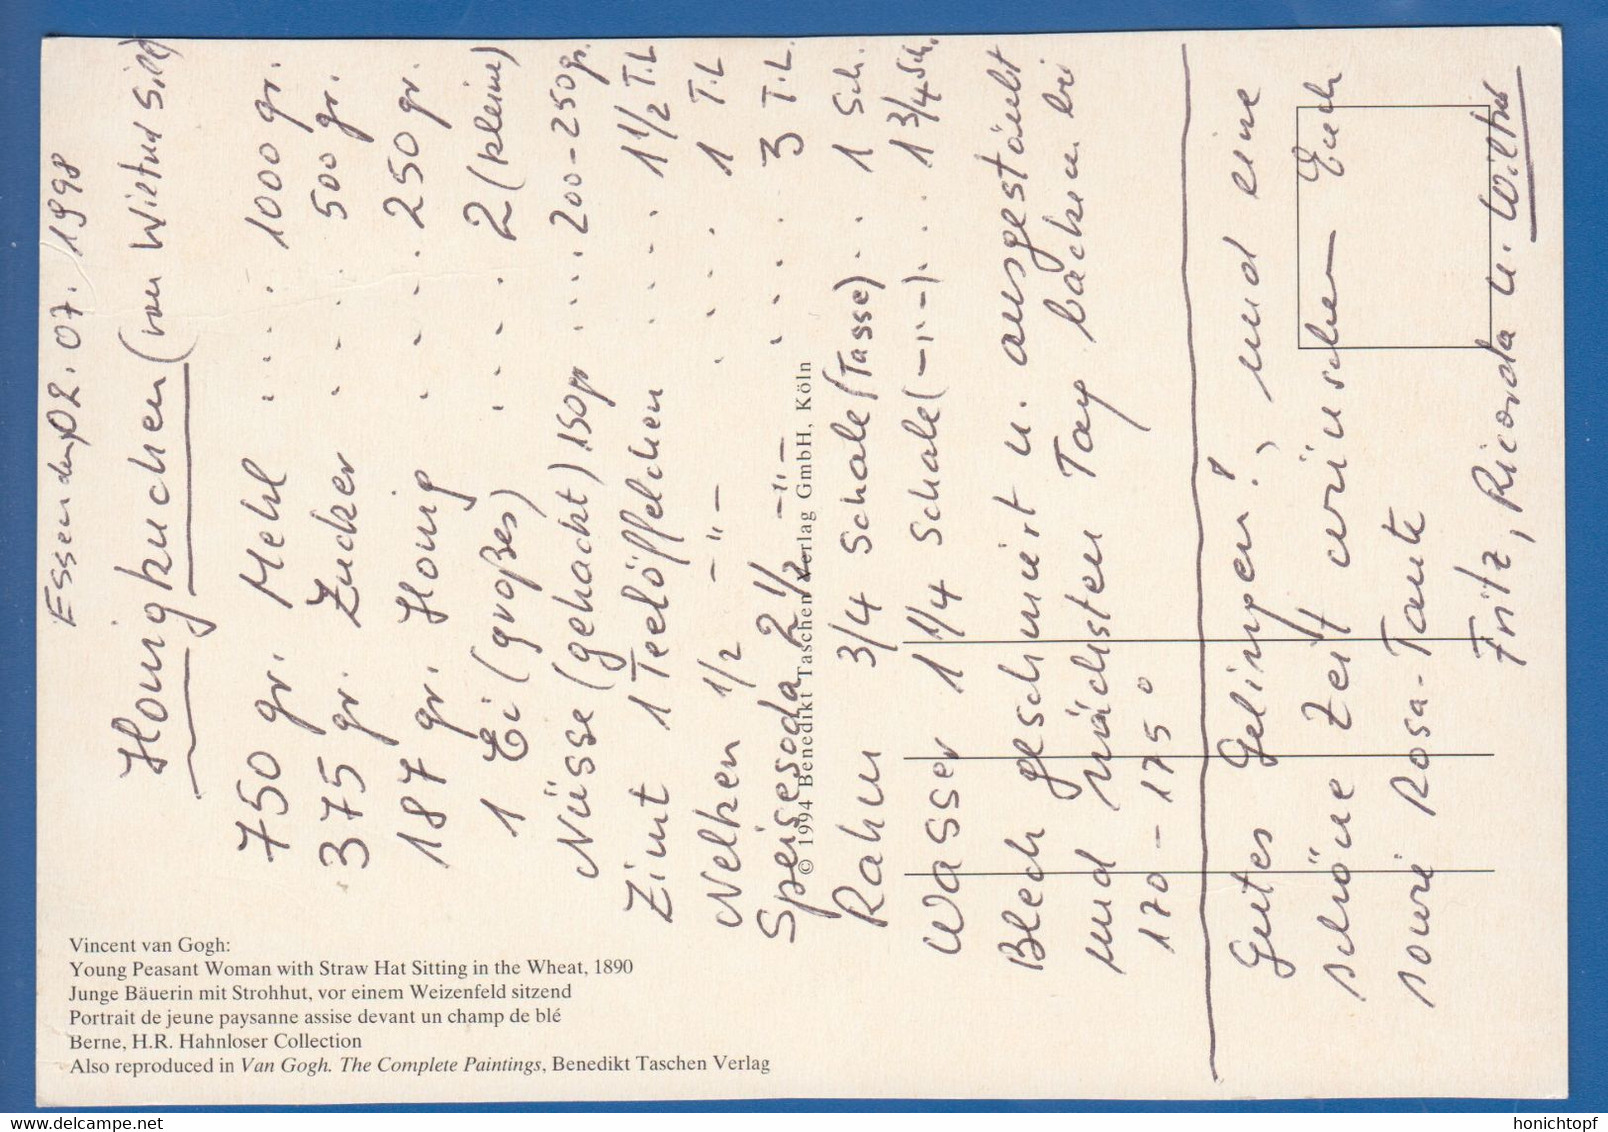 Essen den 02.07.1998
Honigkuchen (von Wiltrud Sill)
750 gr. Mehl .... 1000 gr.
375 gr. Zucker .... 500 gr.
187 gr. Honig .... 250 gr.
1 Ei (großes) .... 2 (kleine)
Nüsse (gehackt) 150 gr .... 200-250 gr.
Zimt 1 Teelöffelchen .... 1 1/2 T.L
Nelken 1/2 -"- .... 1 T.L
Speisesoda 2 1/2 -"- .... 3 T.L.
Rahm 3/4 Schale (Tasse) .. 1 Sch.
Wasser 1 1/4 Schale (-"-) .. 1 3/4 Sch.
Blech geschmiert u. ausgestäubt
und nächsten Tag backen bei
170 - 175°
Gutes Gelingen!, und eine
schöne Zeit wünschen Euch
sowie Rosa-Tante
Fritz, Ricarda u. Wiltrud
© 1994 Benedikt Taschen Verlag GmbH, Köln
Vincent van Gogh:
Young Peasant Woman with Straw Hat Sitting in the Wheat, 1890
Junge Bäuerin mit Strohhut, vor einem Weizenfeld sitzend
Portrait de jeune paysanne assise devant un champ de blé
Berne, H.R. Hahnloser Collection
Also reproduced in Van Gogh. The Complete Paintings, Benedikt Taschen Verlag
www.delcampe.net
honichtopf